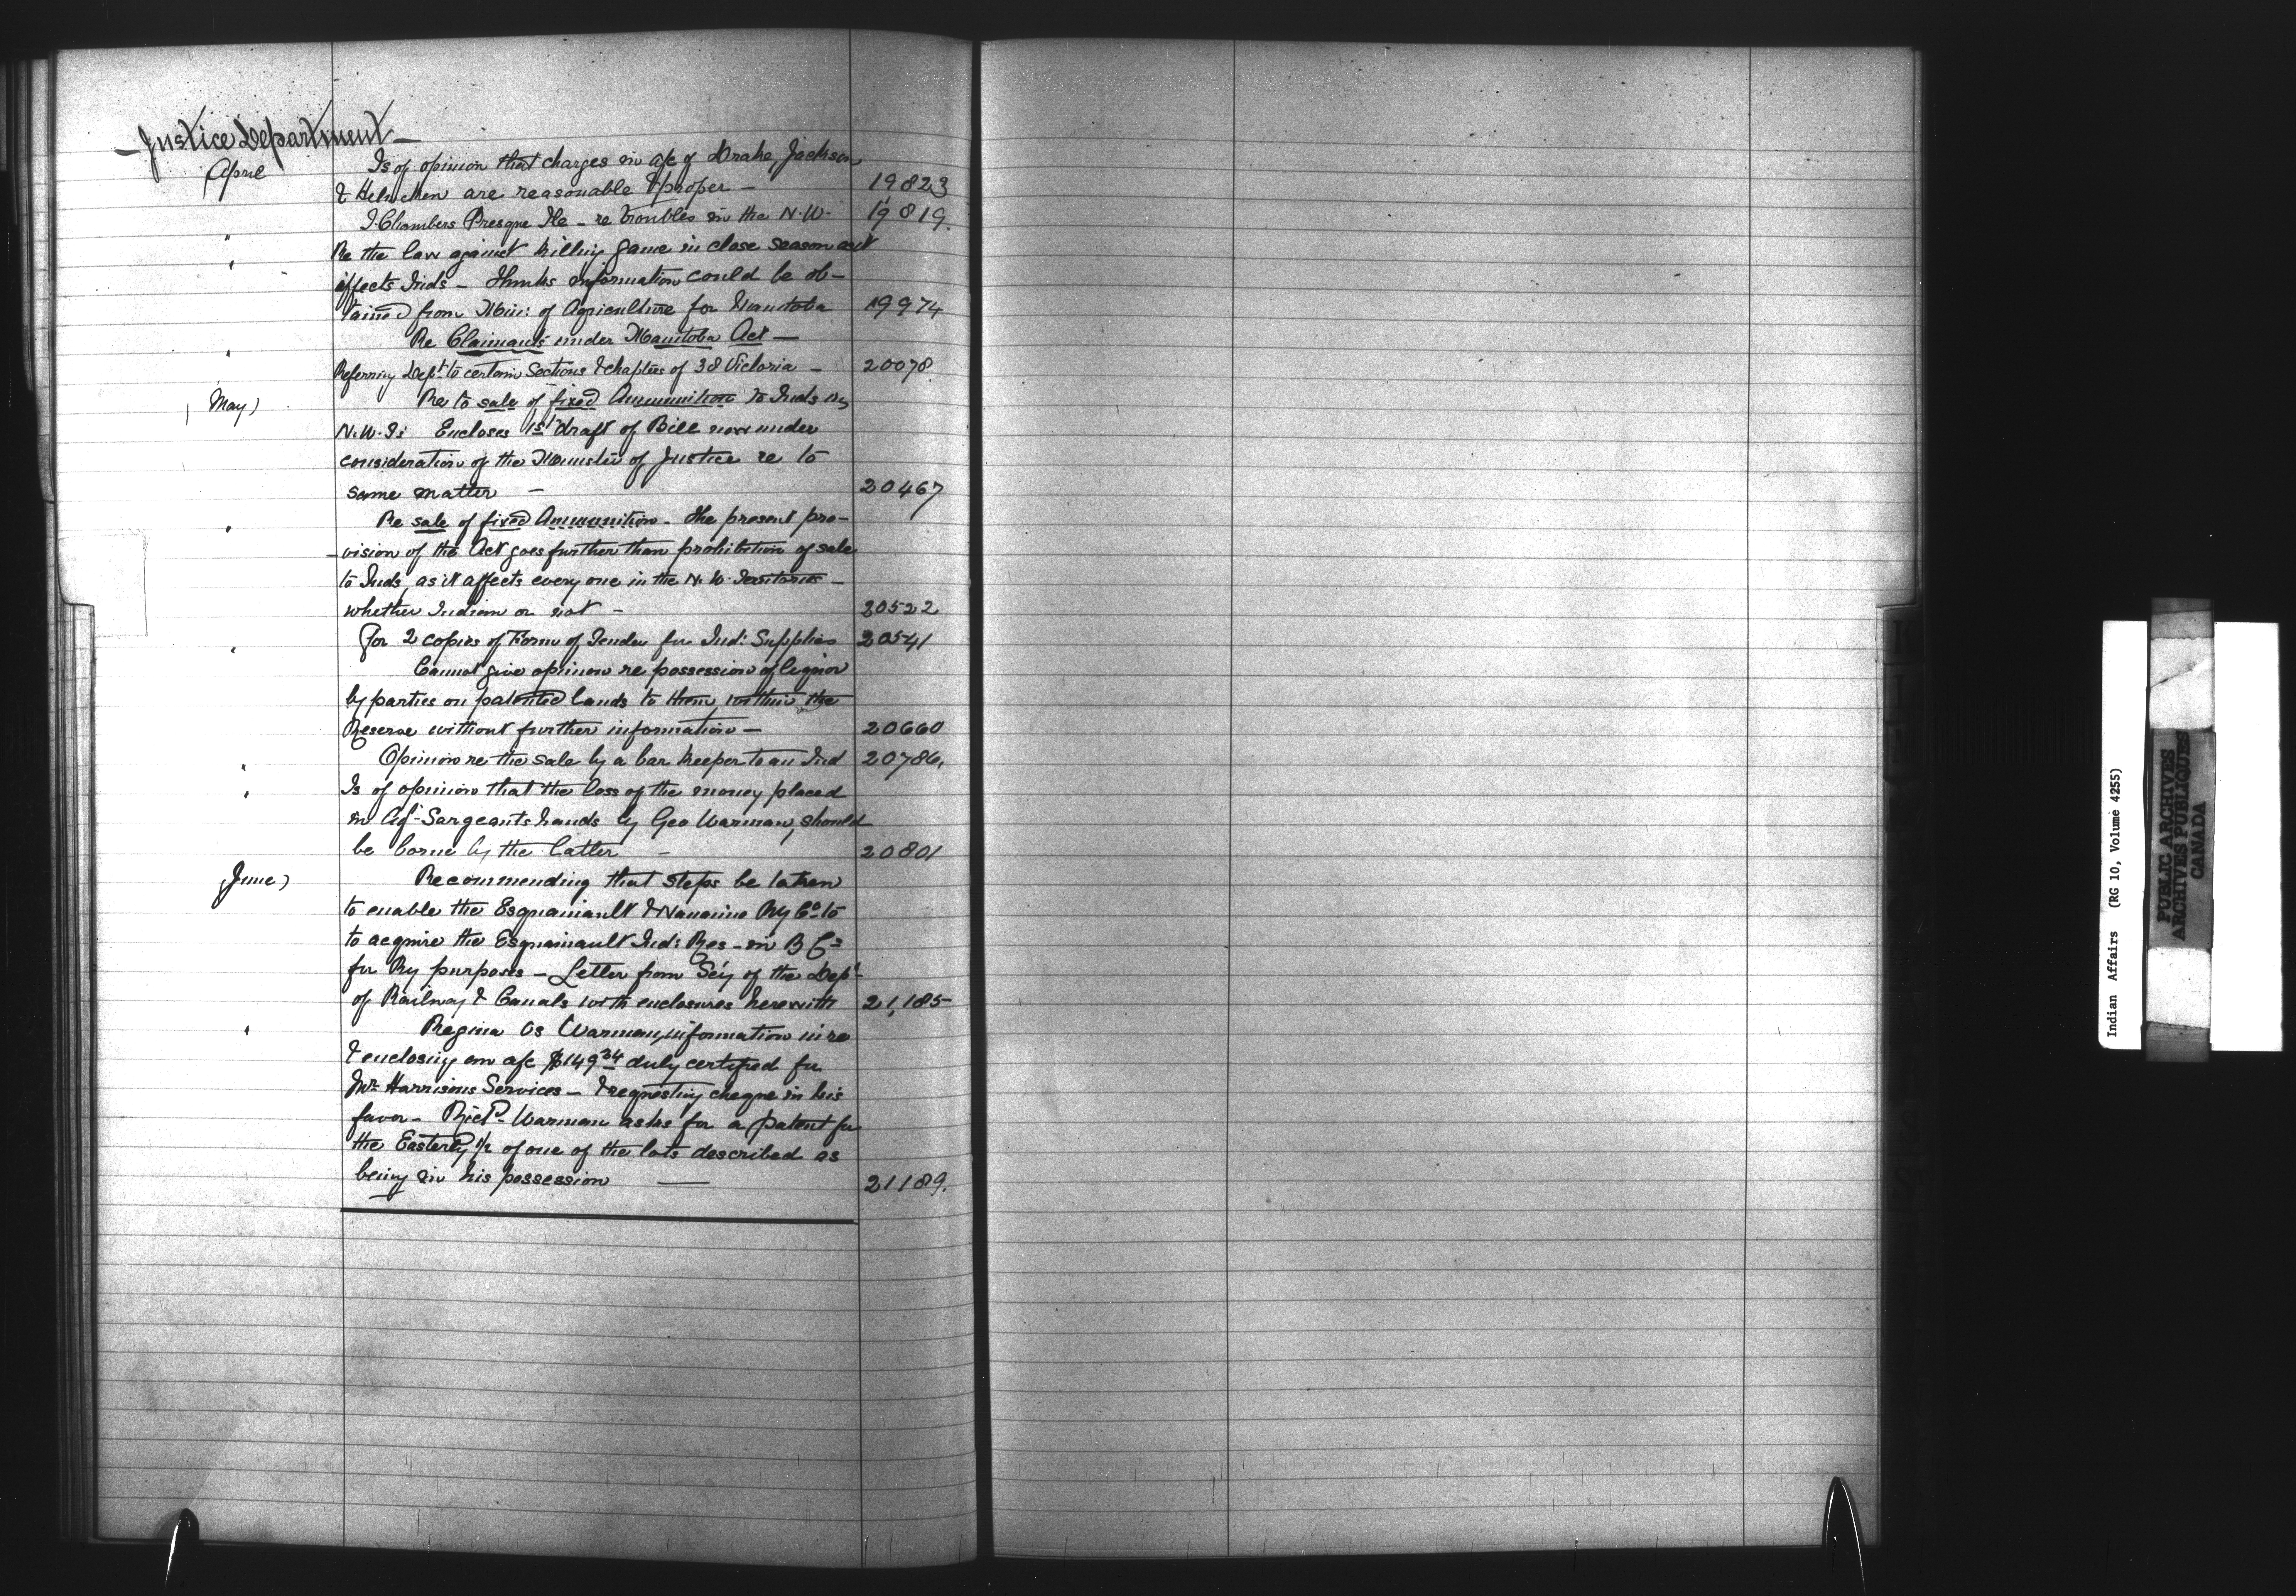 — Justice Department —
April
Is of opinion that charges in a/c of Drake, Jackson
& Helmcken are reasonable & proper — 19823
I. Chambers Presque Ile — re troubles in the N.W. 19819.
" Re the law against killing game in close season as it
" affects Inds — Thinks information could be ob-
tained from Min: of Agriculture for Manitoba 19974
Re Claimants under Manitoba Act —
" Referring Dept. to certain Sections & chapters of 38 Victoria — 20078
May) Re to sale of fixed Ammunition to Inds in
N.W.T: Encloses 1st draft of Bill now under
consideration of the Minister of Justice re to
same matter — 20467
" Re sale of fixed Ammunition. The present pro-
-vision of the Act goes further than prohibition of sale
to Inds, as it affects every one in the N.W. Territories —
whether Indian or not — 20522
" For 2 copies of Form of Tender for Ind: Supplies 20541
Cannot give opinion re possession of liquor
by parties on patented lands to them, within the
Reserve without further information — 20660
" Opinion re the sale by a bar keeper to an Ind 20786.
" Is of opinion that the loss of the money placed
in Agt. Sargeants hands by Geo Warman, should
be borne by the latter — 20801
June) Recommending that steps be taken
to enable the Esquimault & Nanaimo Ry Co. to
to acquire the Esquimault Ind: Res — in B C =
for Ry purposes — Letter from Sey of the Dept.
of Railway & Canals with enclosures herewith 21,185
" Regina Vs Warman, information in re
& enclosing an a/c $149.34 duly certified for
Mr. Harrisons Services — & requesting cheque in his
favor — Richd. Warman asks for a patent for
the Easterly 1/2 of one of the lots described as
being in his possession — 21189.
Indian Affairs (RG 10, Volume 4255)
PUBLIC ARCHIVES
ARCHIVES PUBLIQUES
CANADA